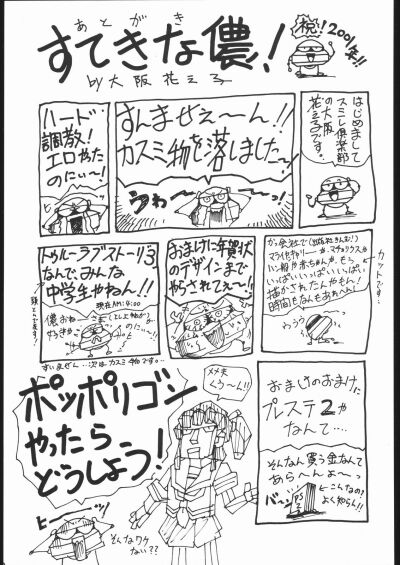 あとがき
すてきな儂!
by 大阪花えろ
祝!2001年!!
はじめまして
スミレ倶楽部
の大阪
花えろです。
すんませぇ〜ん!!
カスミ物を落しました〜!!
うわ〜〜っ!
ハード
調教!
エロやた
のにぃ〜!
ひ〜〜!
かっ会社で(出版社さんむ!)
ハン線や赤ちゃんや、もう
いっぱいいっぱいいっぱい
描かされたんやもん!
時間もなんもあれへん!
カットです…
うろろ
おまけに年賀状
のデザインまで
やらされてぇ〜!
トゥルーラブストーリー3
なんで、みんな
中学生やねん!!
現在AM:4:00
すいません…次はカスミ物です。
おまけのおまけに
プレステ2や
なんて…
そんなん買う金なんて
あら〜んょ〜っ
バーン
PS2
こんなの?
よく知らん!!
ポッポリゴン
やったら
どうしよう!
メメ夫
くろ〜ん!!
ひ〜っ
そんなワケ
ない??